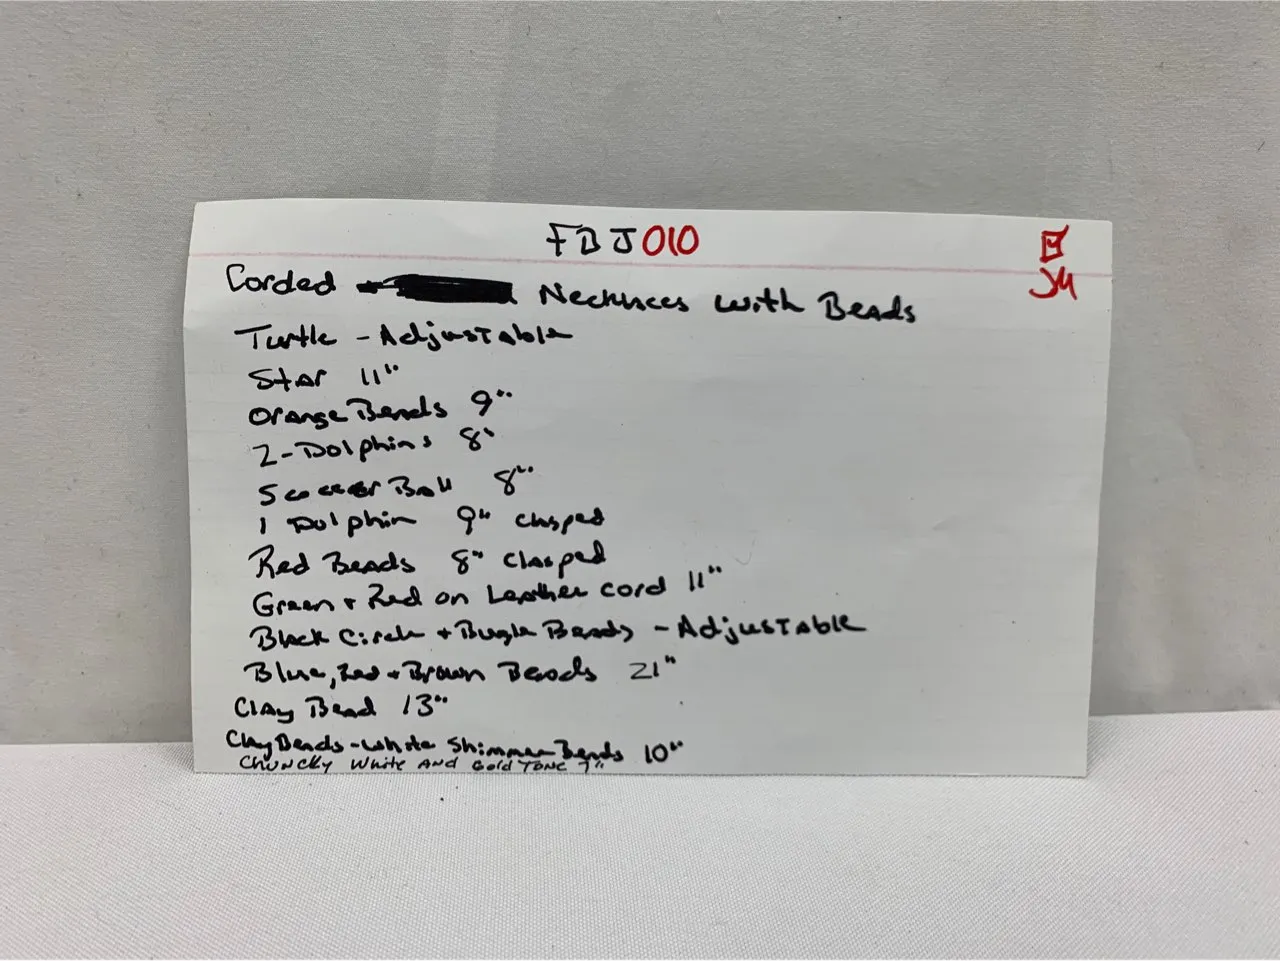 FBJ010
JM
Corded Necklaces with Beads
Turtle - Adjustable
Star 11"
Orange Beads 9"
2-Dolphins 8"
Soccer Ball 8"
1 Dolphin 9" clasped
Red Beads 8" clasped
Green + Red on Leather cord 11"
Black Circle + Bugle Beads - Adjustable
Blue, Red + Brown Beads 21"
Clay Bead 13"
Clay Beads - White Shimmer Beads 10"
Chuncky White And Gold Tone 7"